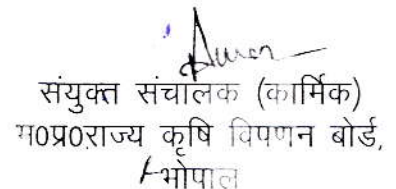 संयुक्त संचालक (कार्मिक)
म0प्र0राज्य कृषि विपणन बोर्ड,
भोपाल